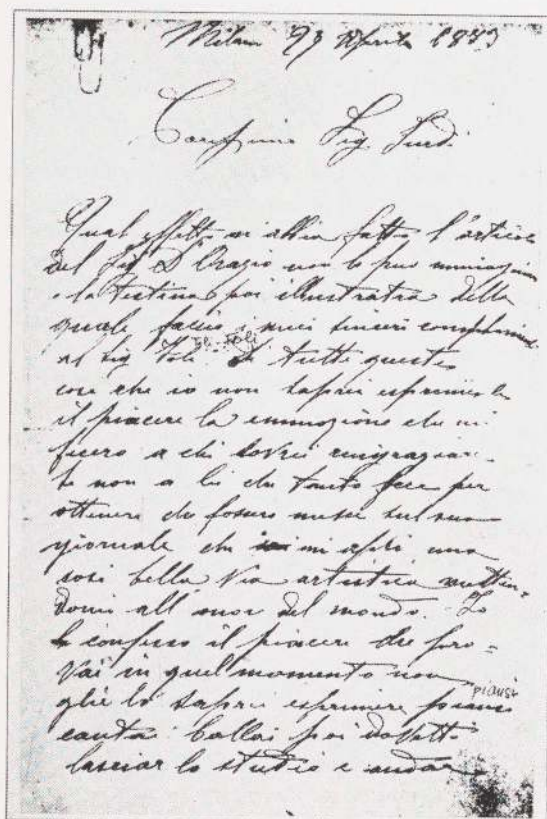 Milano 23 Aprile 18
Sig.
Qual effetto mi abbia fatto l'articolo
del Sig D'Orazio non lo può
e la testina poi illustrata della
quale faccio i miei sinceri complimenti
al Sig Foli Foli tutte queste
cose che io non saprei esprimerle
il piacere la emmozione che mi
fecero a chi dovrei ringraziar
se non a lei che tanto fece per
ottenere che fossero messi sul suo
giornale che mi aprì una
così bella Via artistica metten=
domi all' del mondo. Io
le confesso il piacere che pro=
vai in quel momento non
glie lo saprei esprimere piansi piansi
cantai ballai poi dovetti
lasciar lo studio e andar